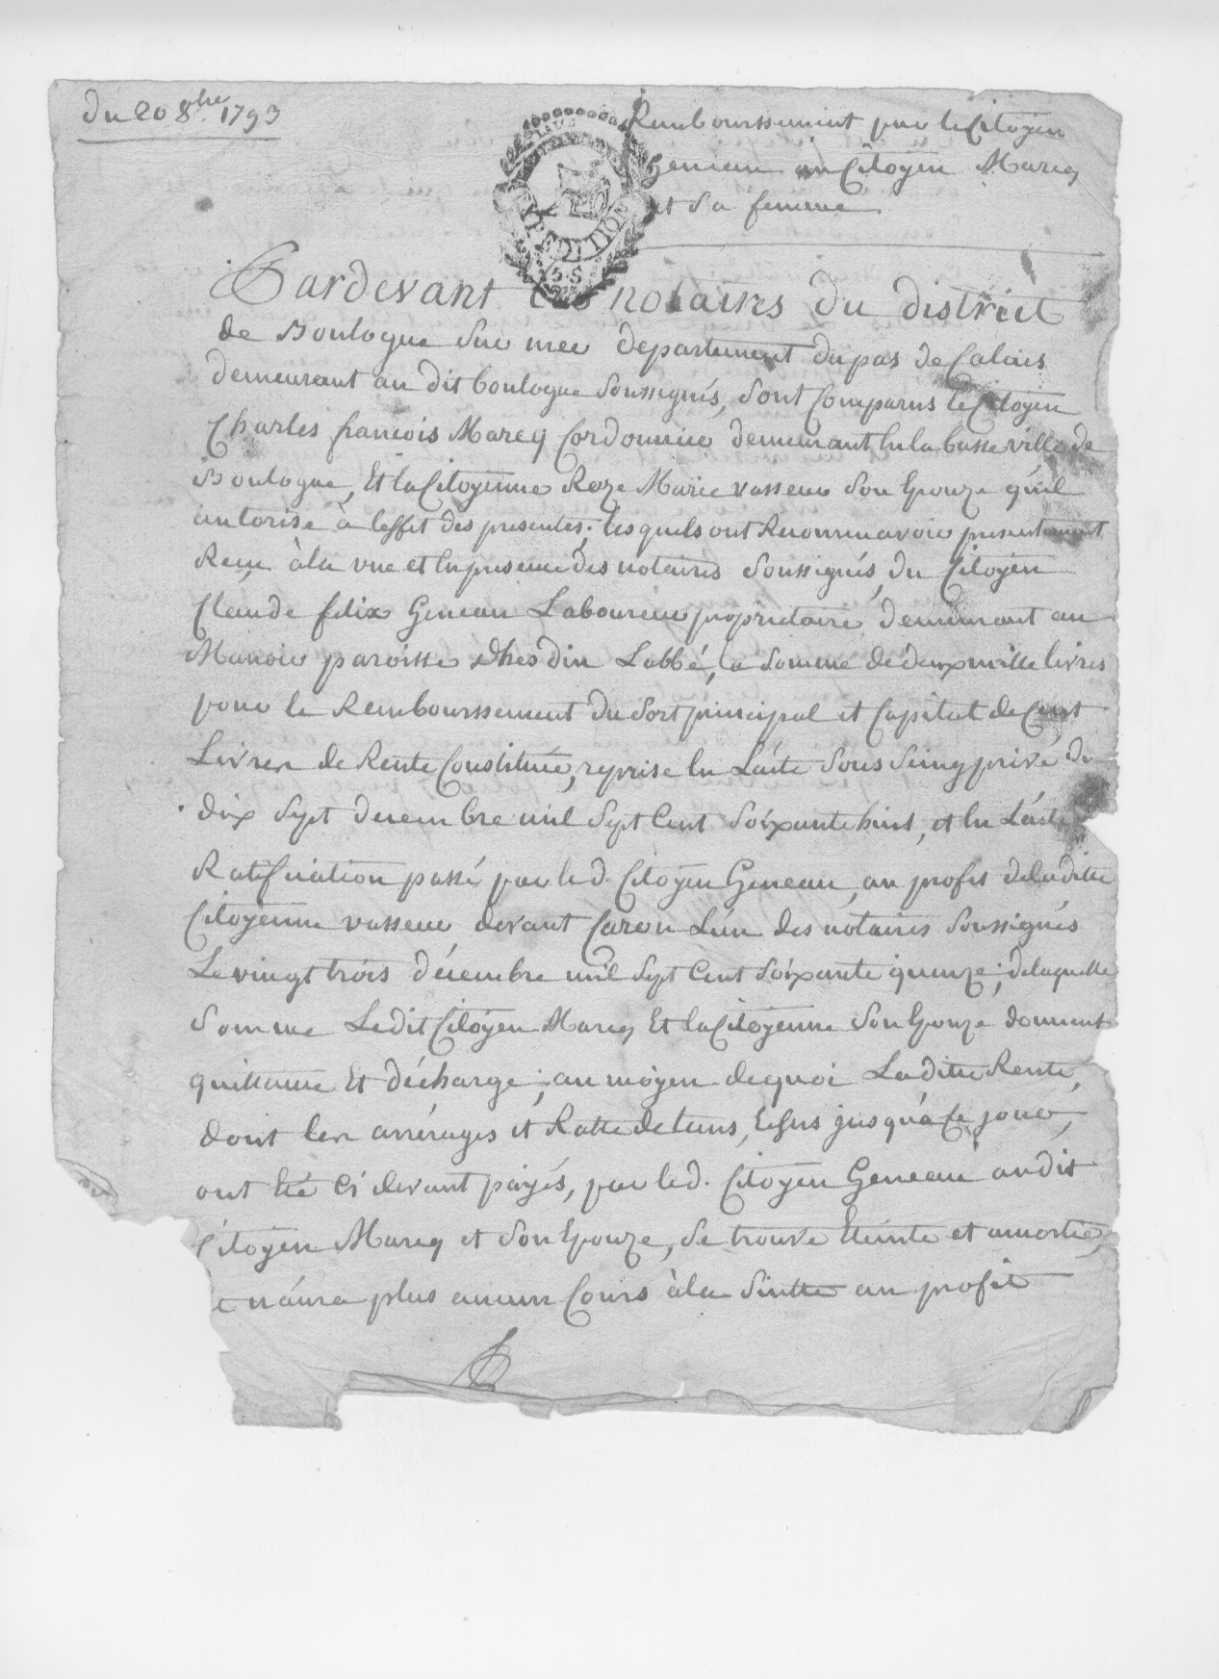 du 20 8bre 1793
Remboursement par le Citoyen
Geneau au Citoyen Marcq
et Sa femme
EXPEDITION
5 S
Pardevant les notaires du district
de Boulogne Sur mer departement du pas de Calais
demeurant au dit boulogne Soussignés, Sont Comparus le Citoyen
Charles francois Marcq Cordonnier demeurant En la basse ville de
Boulogne, Et la Citoyenne Roze Marie vasseur Son Epouze qu'il
autorise à l'effet des presentes; lesquels ont Reconnu avoir presentement
Recu à la vue et En presence des notaires Soussignés, du Citoyen
Claude felix Geneau Laboureur proprietaire, demeurant au
Manoir paroisse d'hesdin Labbé, la Somme de deux mille livres
pour le Remboursement du Sort principal et Capital de Cent
Livres de Rente Constituée, reprise En L'acte Sous Seing privé du
dix Sept decembre mil Sept Cent Soixante huit, et En L'acte
Ratification passé par led. Citoyen Geneau, au profit de laditte
Citoyenne vasseur devant Caron L'un des notaires Soussignés
Le vingt trois décembre mil Sept Cent Soixante quinze; de laquelle
Somme Ledit Citoyen Marcq Et la Citoyenne Son Epouze donnent
quittance Et décharge; au moyen de quoi Laditte Rente,
dont les arrérages et Ratte de tems, Echus jusqu'à ce jour,
ont Eté Ci devant payés, par led. Citoyen Geneau audit
Citoyen Marcq et Son Epouze, Se trouve Eteinte et amortie,
et n'aura plus aucun Cours à la Suitte au profit